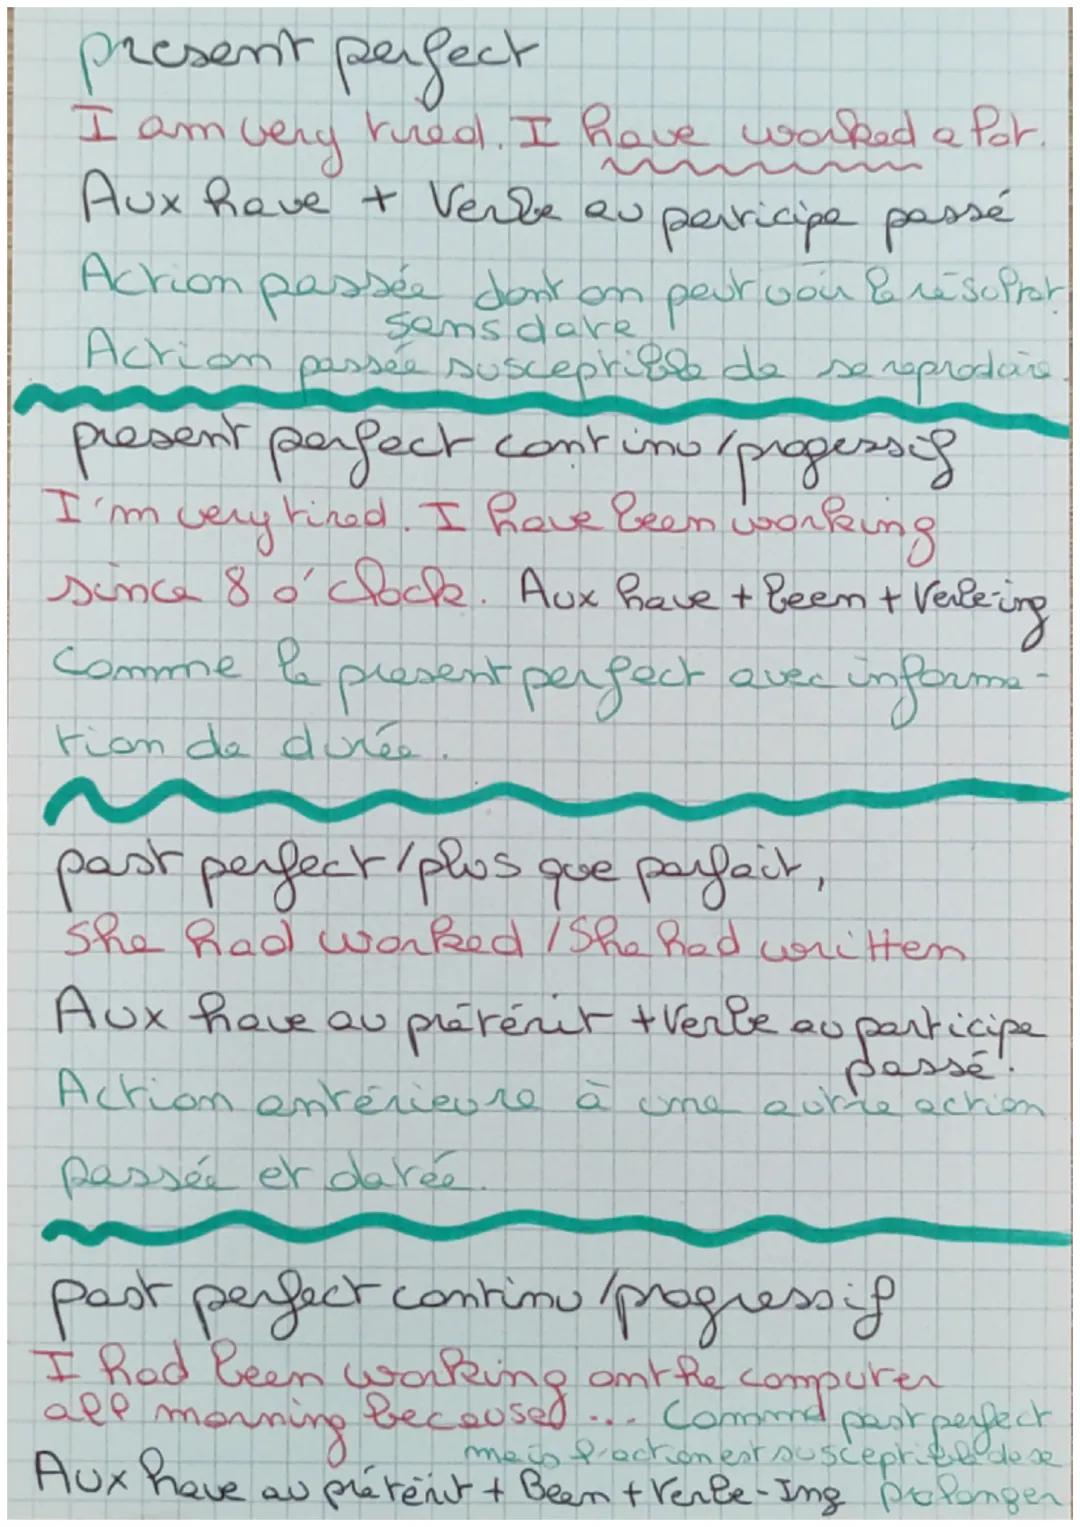 present perfect
I am very tired. I have worked a lot.
Aux have + Verbe au participe passé
Action passée dont on peut voir le résultat
sans date
Action passée susceptible de se reproduire.
present perfect continu/progessif
I'm very tired. I have been working
since 8 o'clock. Aux have + been + Verbe-ing
Comme le present perfect avec informa-
tion de durée.
past perfect/plus que parfait,
She had worked / She had written
Aux have au prétérit + Verbe au participe
passé.
Action antérieure à une autre action
passée et datée.
past perfect continu/progressif
I had been working on the computer
all morning becaused ... Comme past perfect
mais l'action est susceptible de se
Aux have au prétérit + Been + Verbe-Ing prolonger